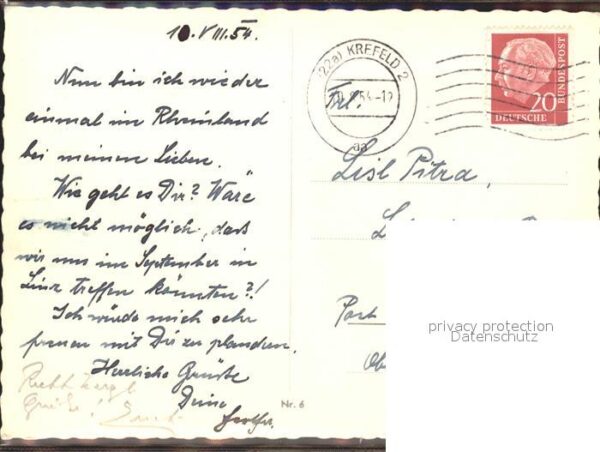 10.VIII.54.
Nun bin ich wieder
einmal im Rheinland
bei meinen Lieben.
Wie geht es Dir? Wäre
es nicht möglich, daß
wir uns im September in
Linz treffen könnten?!
Ich würde mich sehr
freuen mit Dir zu plaudern.
Herzliche Grüße
Deine
Recht herzl.
Grüße!
Nr. 6
(22a) KREFELD 2
.8.54-19
aa
20
DEUTSCHE
BUNDESPOST
Frl.
Lisl Pitra,
Post
privacy protection
Datenschutz